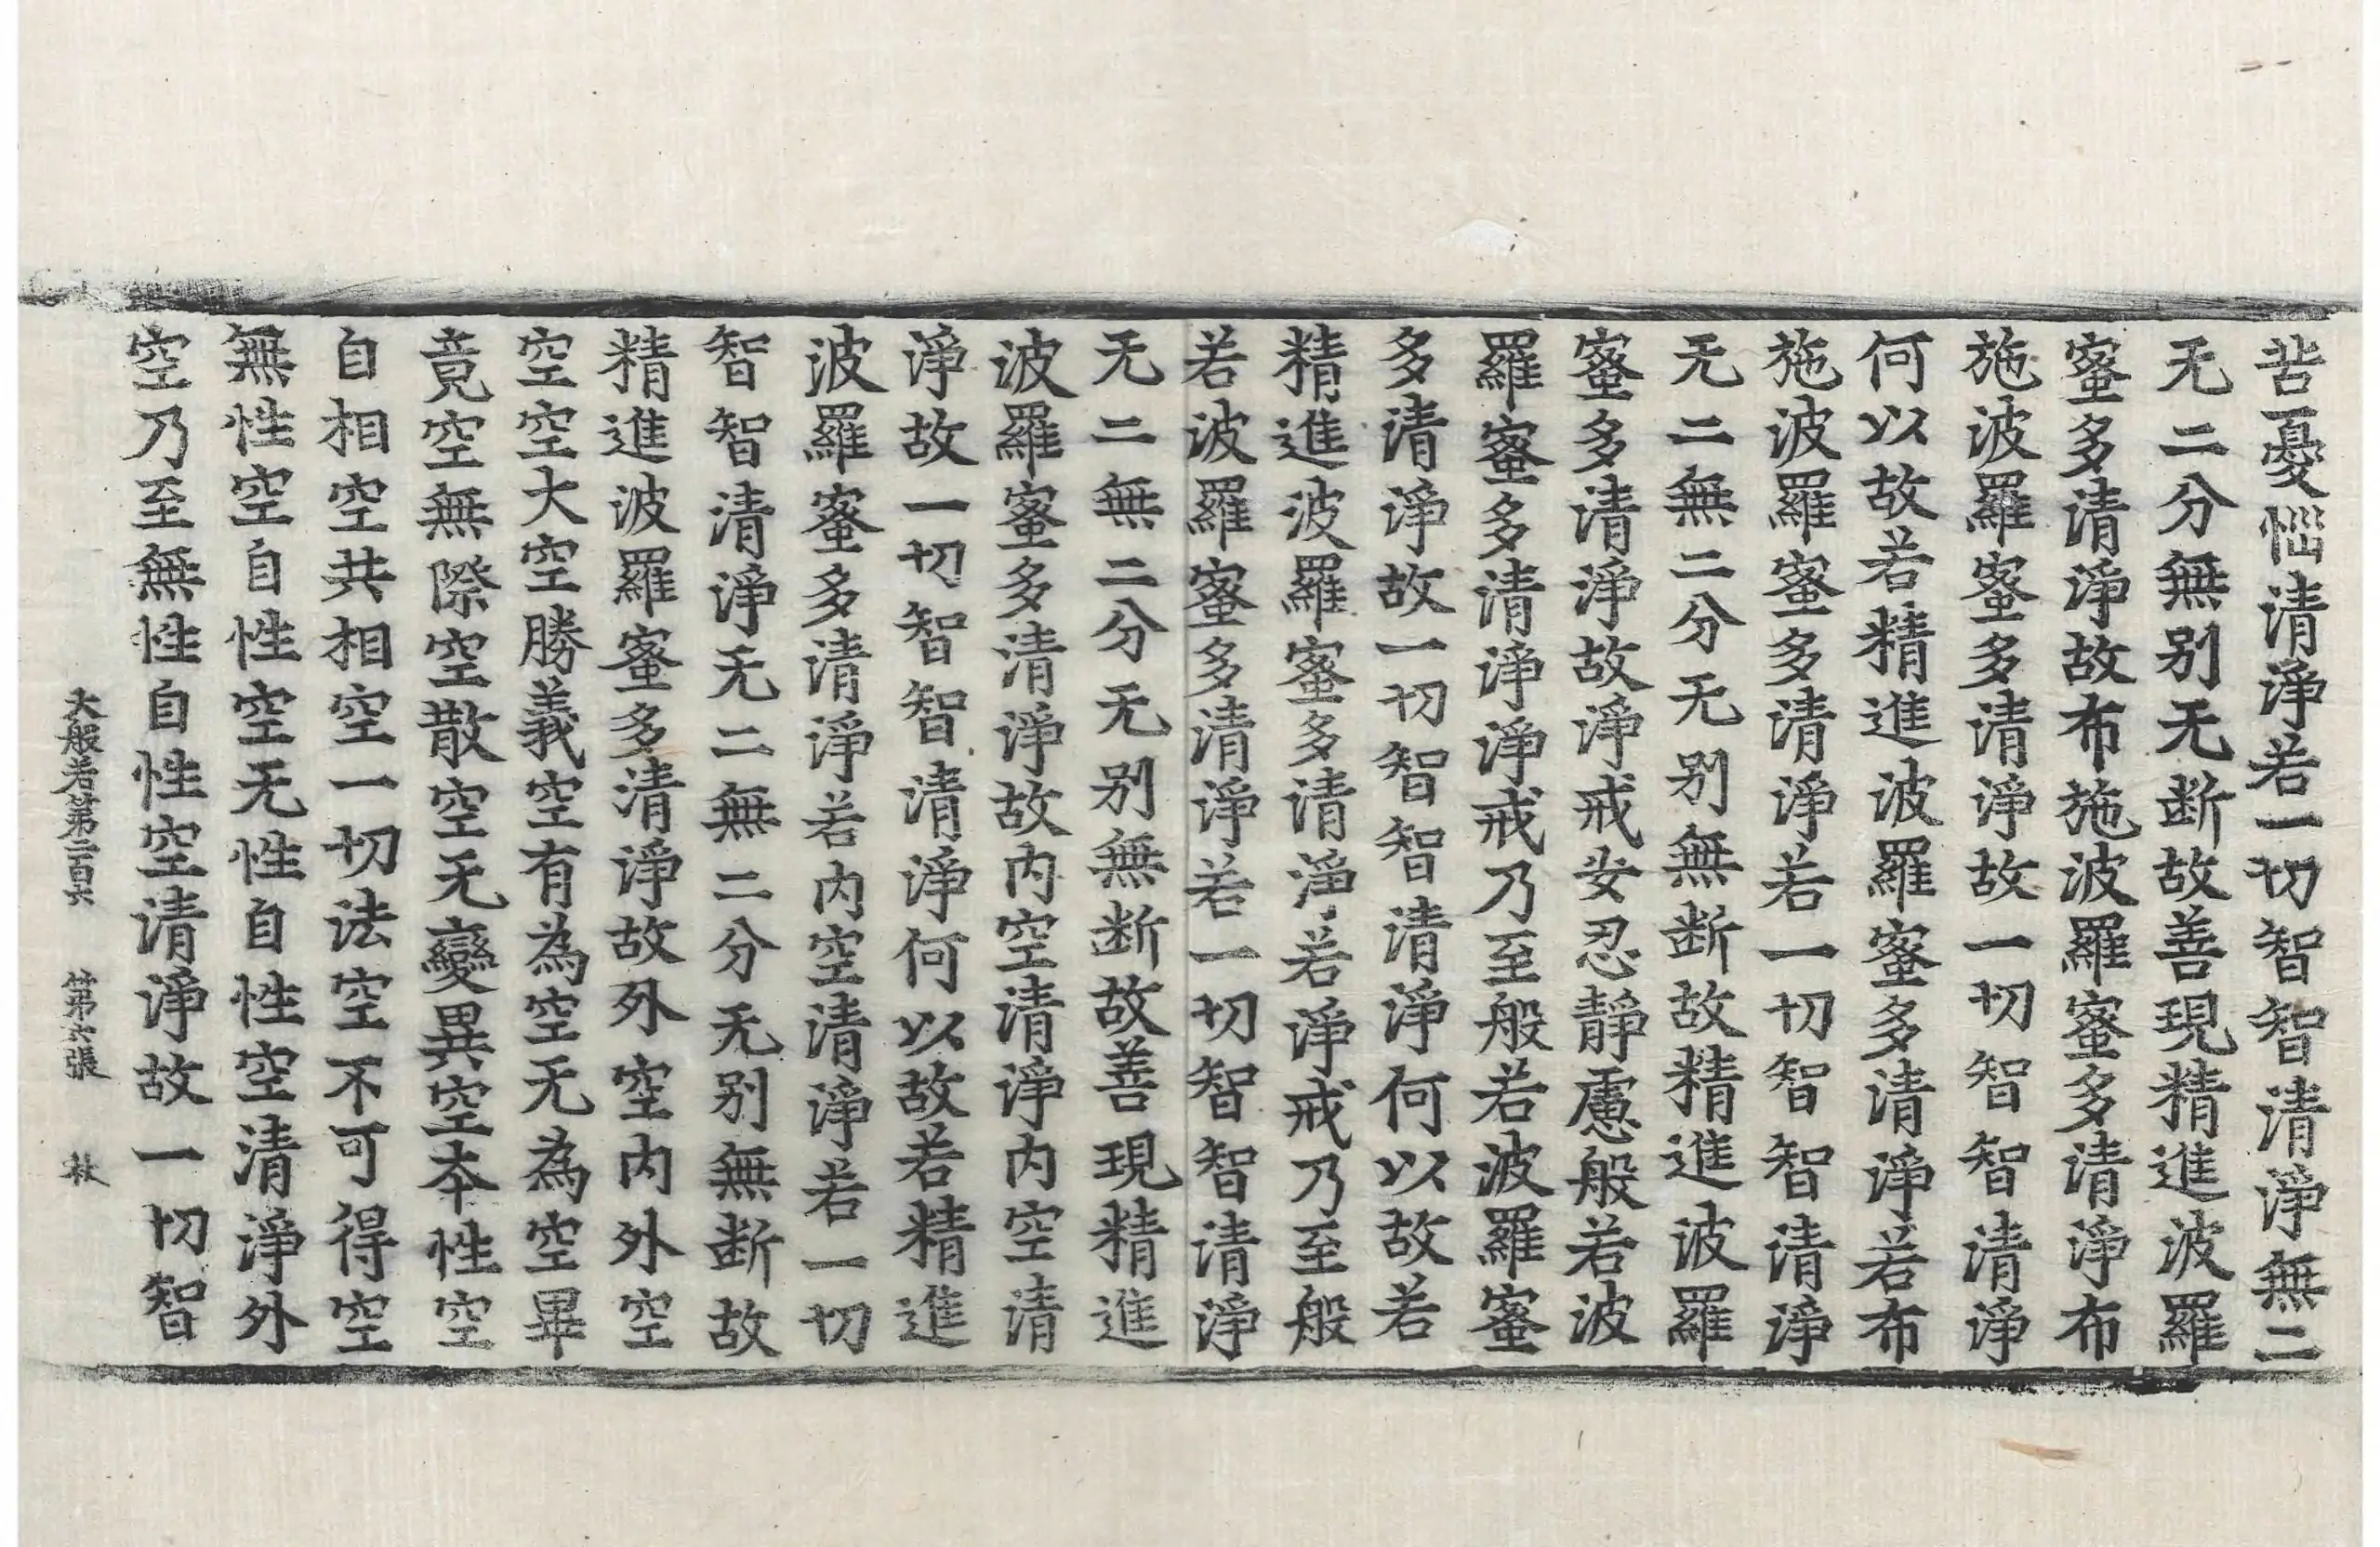 苦憂惱清淨若一切智智清淨無二
无二分無别无断故善現精進波羅
蜜多清淨故布施波羅蜜多清淨布
施波羅蜜多清淨故一切智智清淨
何以故若精進波羅蜜多清淨若布
施波羅蜜多清淨若一切智智清淨
无二無二分无别無断故精進波羅
蜜多清淨故淨戒安忍靜慮般若波
羅蜜多清淨淨戒乃至般若波羅蜜
多清淨故一切智智清淨何以故若
精進波羅蜜多清淨若淨戒乃至般
若波羅蜜多清淨若一切智智清淨
无二無二分无别無断故善現精進
波羅蜜多清淨故内空清淨内空清
淨故一切智智清淨何以故若精進
波羅蜜多清淨若内空清淨若一切
智智清淨无二無二分无别無断故
精進波羅蜜多清淨故外空内外空
空空大空勝義空有為空无為空畢
竟空無際空散空无變異空本性空
自相空共相空一切法空不可得空
無性空自性空无性自性空清淨外
空乃至無性自性空清淨故一切智
大般若第二百六 第六張 秋